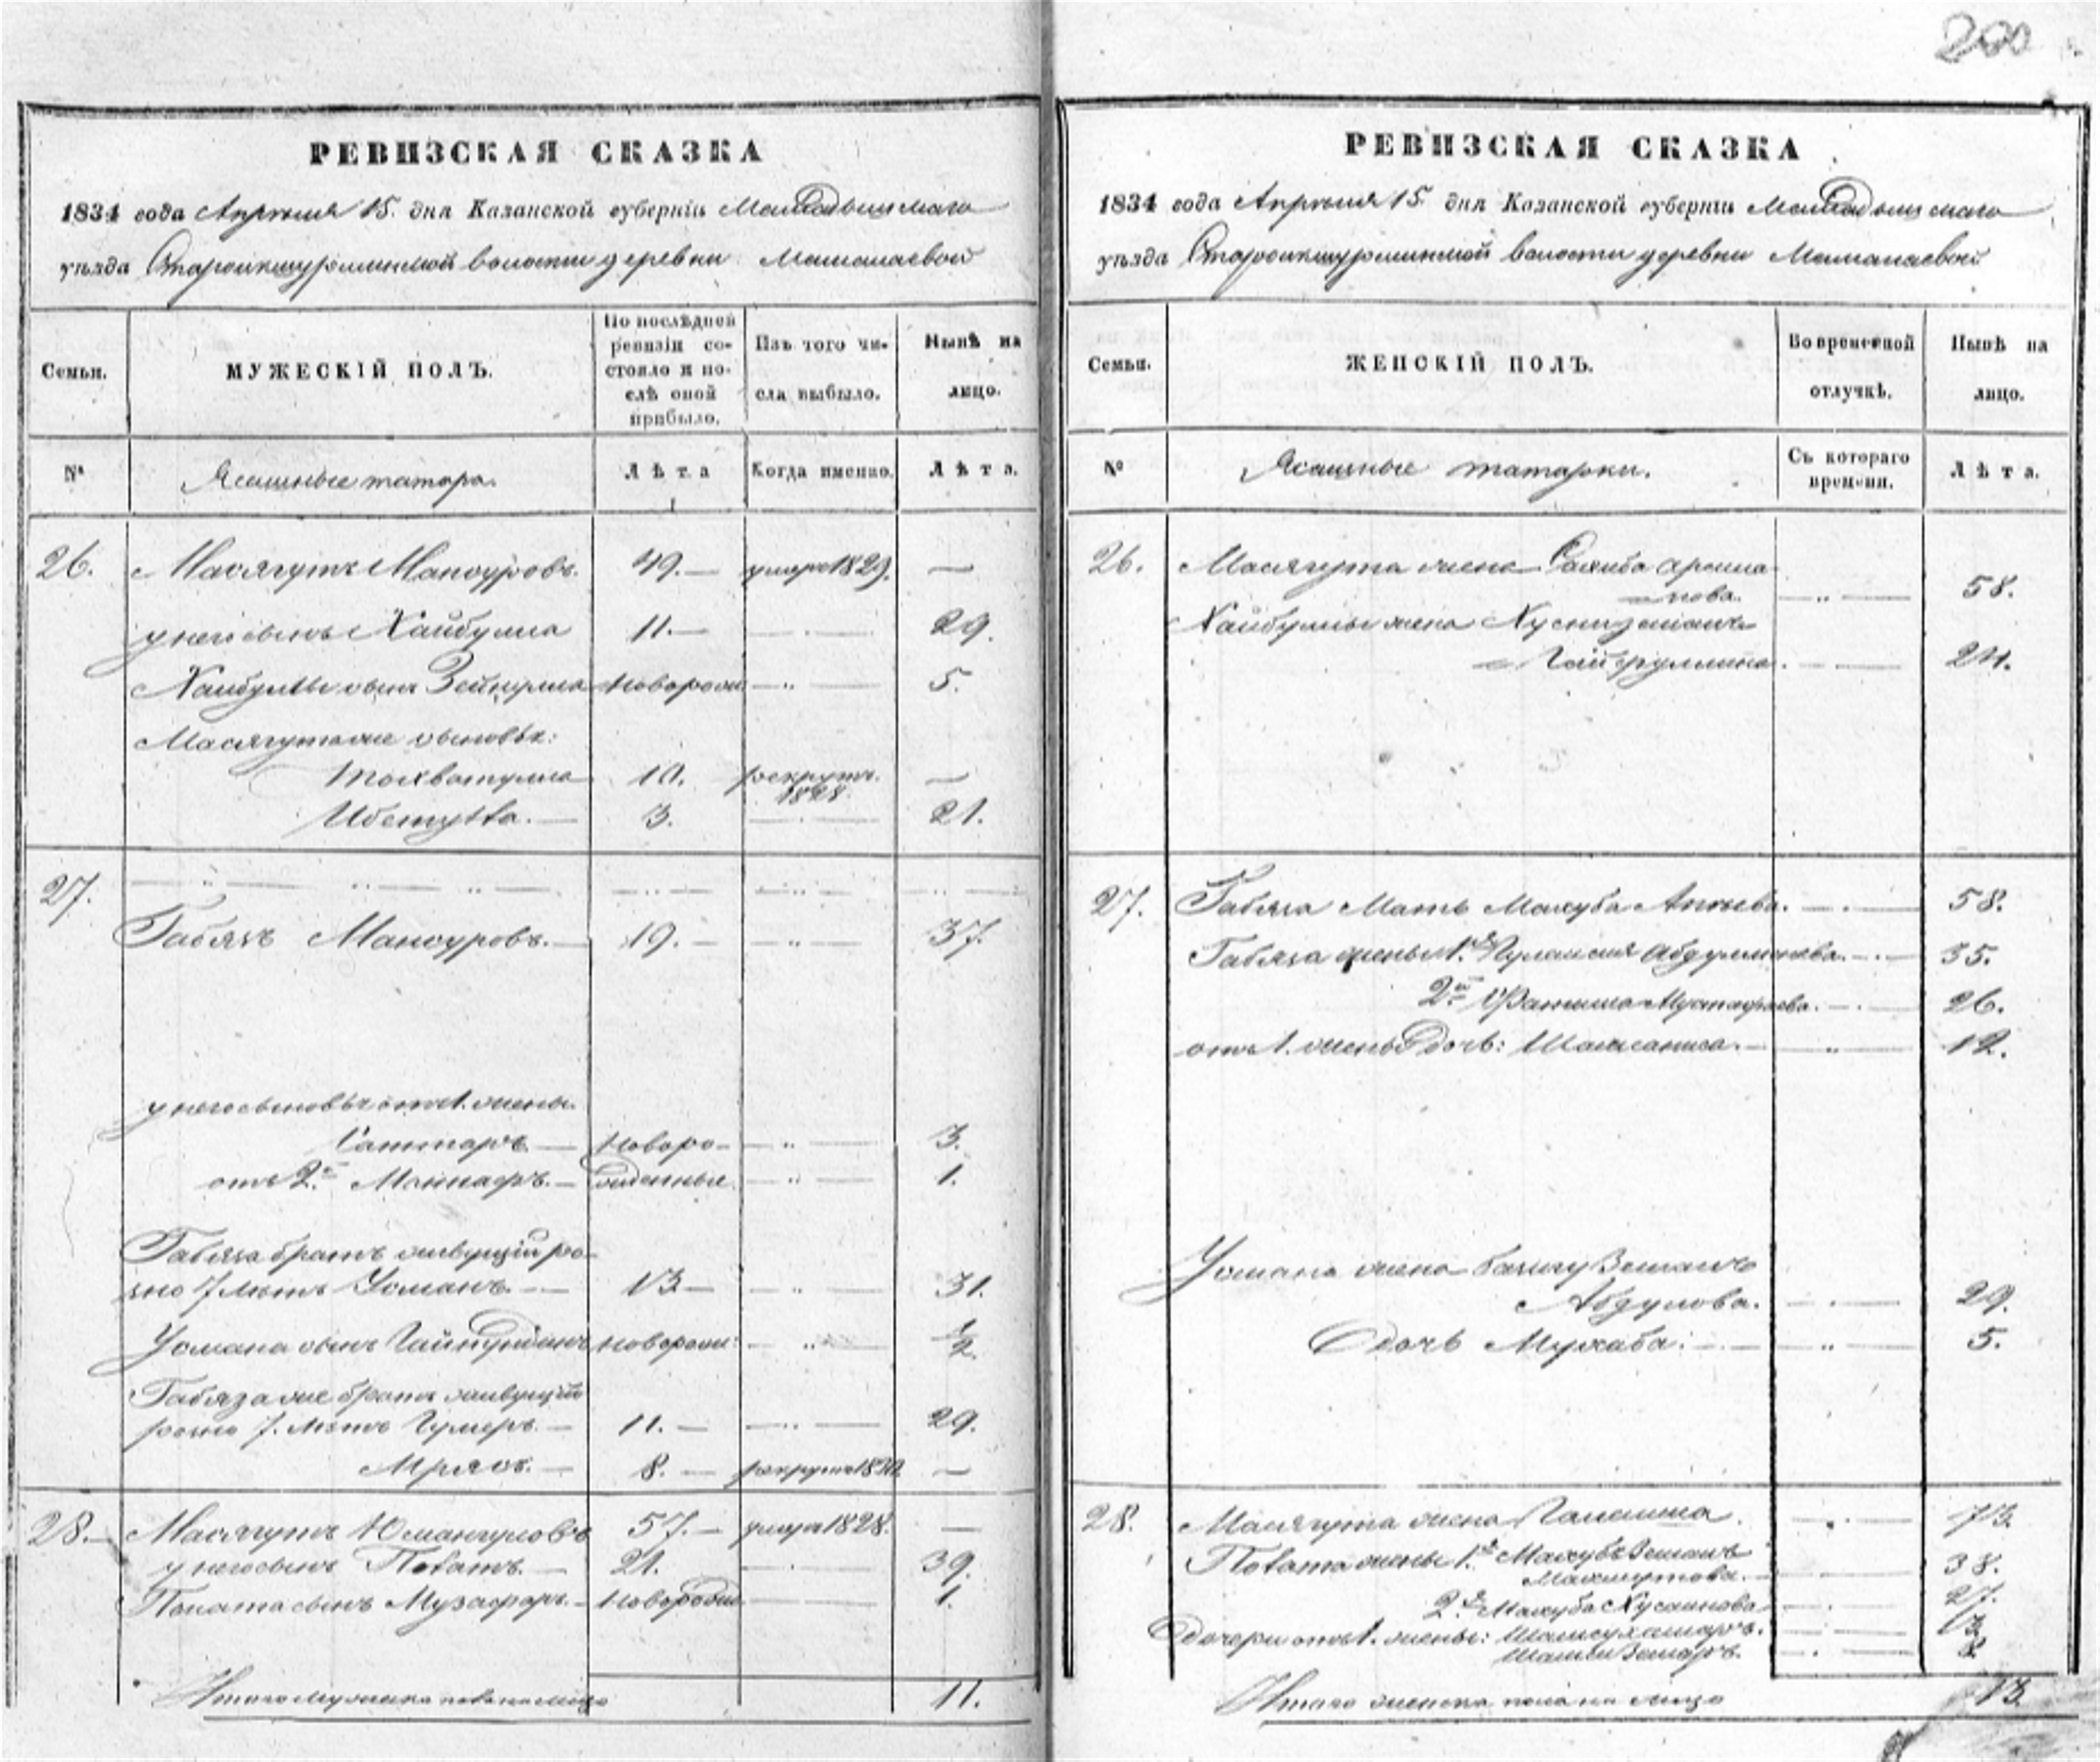 200
РЕВИЗСКАЯ СКАЗКА
1834 года Апреля 15. дня Казанской губернiи Мамадышскаго
уѣзда Староикшурминской волости деревни Мамалаевой
Семьи.
МУЖЕСКIЙ ПОЛЪ.
По послѣдней ревизiи со-
стояло и по-
слѣ оной
прибыло.
Изъ того чи-
сла выбыло.
Нынѣ на
лицо.
№
Ясашные татара.
Лѣта
Когда именно.
Лѣта.
26. Масягутъ Мансуровъ. 49. — умеръ 1829. —
у него сынъ Хайбулла 11. — 29.
Хайбуллы сынъ Зейнулла новорож 5.
Масягута же сыновья:
Тохватулла 10. рекрутъ 1828. —
3. — 21.
27.
Габязъ Мансуровъ. — 19. — 37.
у него сыновья отъ 1. жены.
Саттаръ — новоро- 3.
отъ 2й Маннафъ. — жденные 1.
Габяза братъ живущiй ро-
зно 7 лѣтъ Усманъ. — 13 — 31.
Усмана сынъ Гайнутдинъ новорож: 1/2
Габяза же братъ живущiй
розно 7. лѣтъ Гумеръ. — 11. — 29.
8. — рекрутъ —
28. Масягутъ Юмангуловъ 57. — умеръ 1828. —
у него сынъ 21. 39.
сынъ Музафаръ. — новорожд 1.
Итого мужеска пола на лицо 11.
РЕВИЗСКАЯ СКАЗКА
1834 года Апреля 15. дня Казанской губернiи Мамадышскаго
уѣзда Староикшурминской волости деревни Мамалаевой
Семьи.
ЖЕНСКIЙ ПОЛЪ.
Во временной
отлучкѣ.
Нынѣ на
лицо.
№
Ясашные татарки.
Съ котораго
времени.
Лѣта.
26. Масягута жена
58.
Хайбуллы жена Хуснизаманъ
Гайфуллина. 24.
27. Габяза мать Махуба 58.
Габяза жены 1я 35.
2я Мустафаева. 26.
отъ 1. жены дочь: 12.
Усмана жена
Абдулова. 29.
дочь Мухаба: 5.
28. Масягута жена 73.
жены 1я Махубъзаманъ
Махмутова. — 38.
2я Махуба Хусаинова 27.
дочери отъ 1. жены: Шамсукамаръ. 13.
8
Итого женска пола на лицо 13.